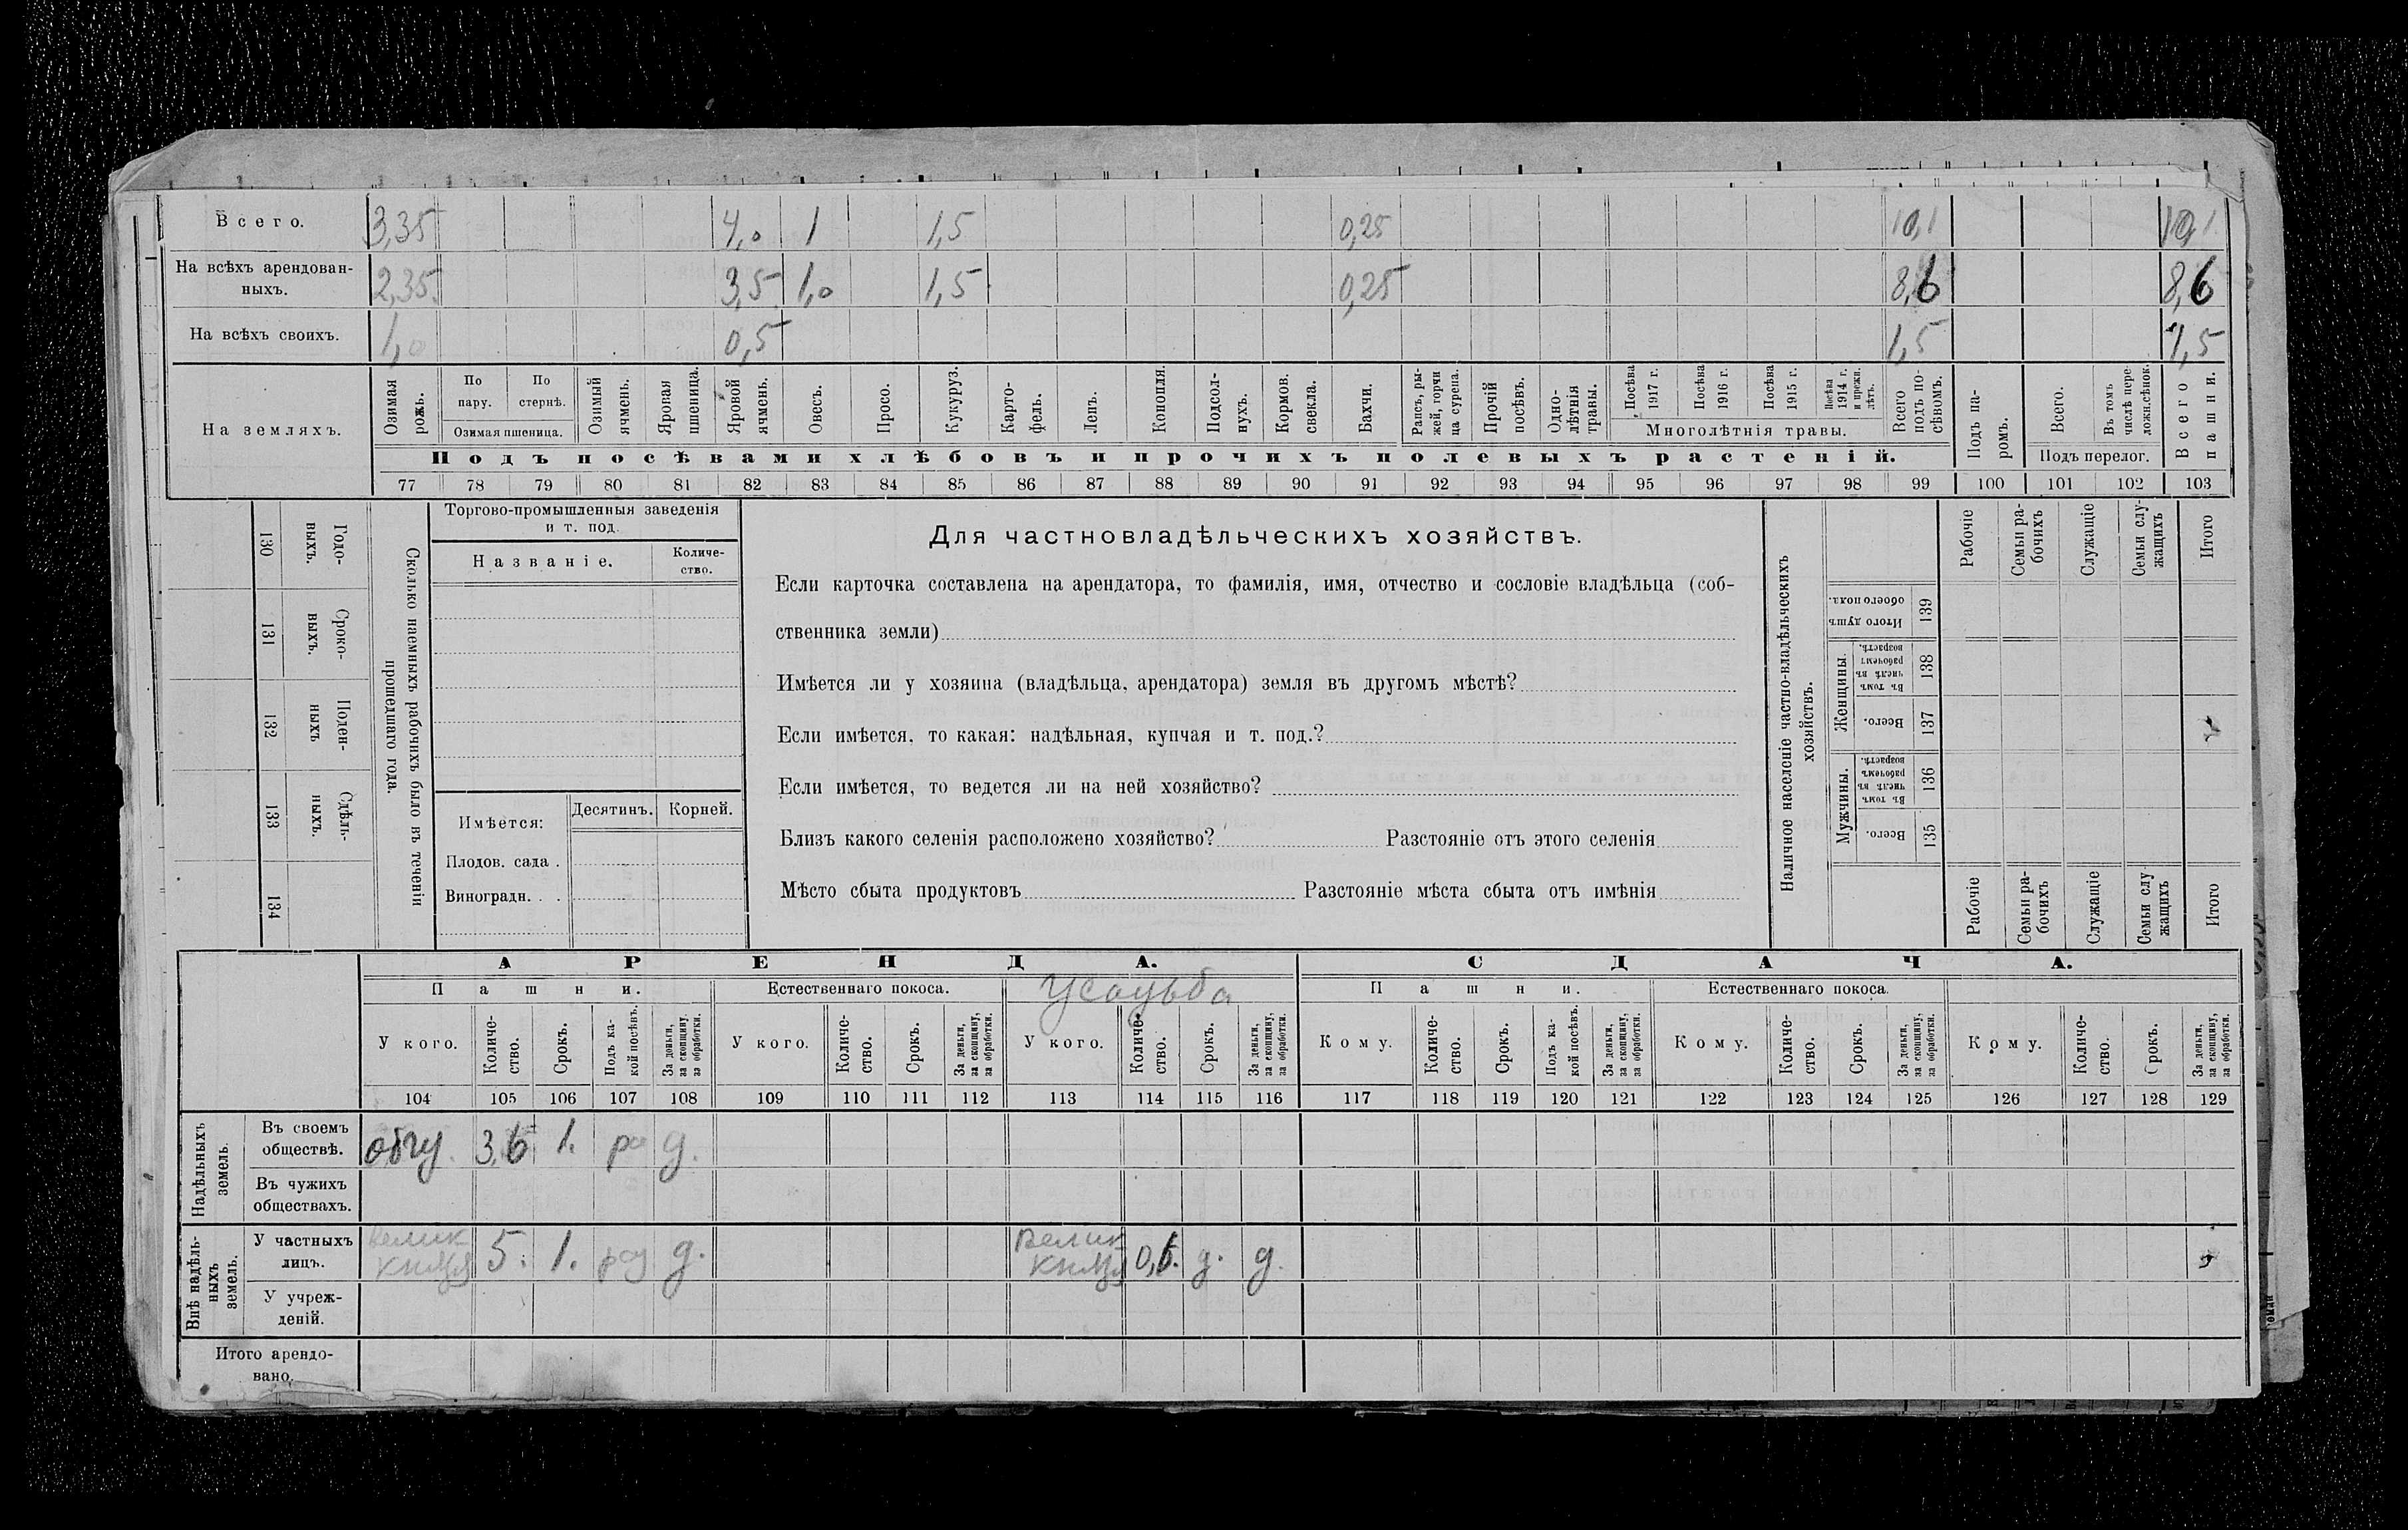 Всего. 3,35 4,0 1 1,5 0,25 10,1 10,1
На всѣхъ арендован-
ныхъ. 2,35 3,5 1,0 1,5 0,25 8,6 8,6
На всѣхъ своихъ. 1,0 0,5 1,5 1,5
На земляхъ.
Озимая рожь.
По пару.
По стернѣ.
Озимая пшеница.
Озимый ячмень.
Яровая пшеница.
Яровой ячмень.
Овесъ.
Просо.
Кукуруз.
Карто-
фель.
Ленъ.
Конопля.
Подсол-
нухъ.
Кормов.
свекла.
Бахчи.
Рапсъ, ры-
жей, горчи
ца сурепа.
Прочій
посѣвъ.
Одно-
лѣтнія
травы.
Посѣва
1917 г.
Посѣва
1916 г.
Посѣва
1915 г.
Посѣва
1914 г.
и прежн.
лѣтъ.
Многолѣтнія травы.
Всего
подъ по-
сѣвомъ.
Подъ па-
ромъ.
Всего.
Въ томъ
числѣ пере-
ложн.сѣнок.
Подъ перелог.
Всего
пашни.
Подъ посѣвами хлѣбовъ и прочихъ полевыхъ растеній.
77 78 79 80 81 82 83 84 85 86 87 88 89 90 91 92 93 94 95 96 97 98 99 100 101 102 103
130 Годо-
выхъ.
131 Сроко-
выхъ.
132 Поден-
ныхъ
133 Сдѣль-
ныхъ.
134
Сколько наемныхъ рабочихъ было въ теченіи
прошедшаго года.
Торгово-промышленныя заведенія
и т. под.
Названіе.
Количе-
ство.
Имѣется:
Десятинъ.
Корней.
Плодов. сада .
Виноградн. . .
Для частновладѣльческихъ хозяйствъ.
Если карточка составлена на арендатора, то фамилія, имя, отчество и сословіе владѣльца (соб-
ственника земли)
Имѣется ли у хозяина (владѣльца, арендатора) земля въ другомъ мѣстѣ?
Если имѣется, то какая: надѣльная, купчая и т. под.?
Если имѣется, то ведется ли на ней хозяйство?
Близъ какого селенія расположено хозяйство? Разстояніе отъ этого селенія
Мѣсто сбыта продуктовъ Разстояніе мѣста сбыта отъ имѣнія
Наличное населеніе частно-владѣльческихъ
хозяйствъ.
Рабочіе
Семьи ра-
бочихъ
Служащіе
Семьи слу-
жащихъ
Итого
Итого душъ
обоего пола.
139
Женщины.
Въ томъ
числѣ въ
рабочемъ
возрастѣ.
138
Всего.
137
Мужчины.
Въ томъ
числѣ въ
рабочемъ
возрастѣ.
136
Всего.
135
Рабочіе
Семьи ра-
бочихъ
Служащіе
Семьи слу
жащихъ
Итого
АРЕНДА.
СДАЧА.
Пашни.
Естественнаго покоса.
Усадьба
Пашни.
Естественнаго покоса.
У кого.
Количе-
ство.
Срокъ.
Подъ ка-
кой посѣвъ.
За деньги,
за скопщину,
за обработки.
У кого.
Количе-
ство.
Срокъ.
За деньги,
за скопщину,
за обработки.
У кого.
Количе-
ство.
Срокъ.
За деньги,
за скопщину,
за обработки.
Кому.
Количе-
ство.
Срокъ.
Подъ ка-
кой посѣвъ.
За деньги,
за скопщину,
за обработки.
Кому.
Количе-
ство.
Срокъ.
За деньги,
за скопщину,
за обработки.
Кому.
Количе-
ство.
Срокъ.
За деньги,
за скопщину,
за обработки.
104 105 106 107 108 109 110 111 112 113 114 115 116 117 118 119 120 121 122 123 124 125 126 127 128 129
Надѣльныхъ
земель.
Въ своемъ
обществѣ. 3,6 1. д.
Въ чужихъ
обществахъ.
Внѣ надѣль-
ныхъ
земель.
У частныхъ
лицъ. Велик 5. 1. д. Велик д. д
У учреж-
деній.
Итого арендо-
вано.